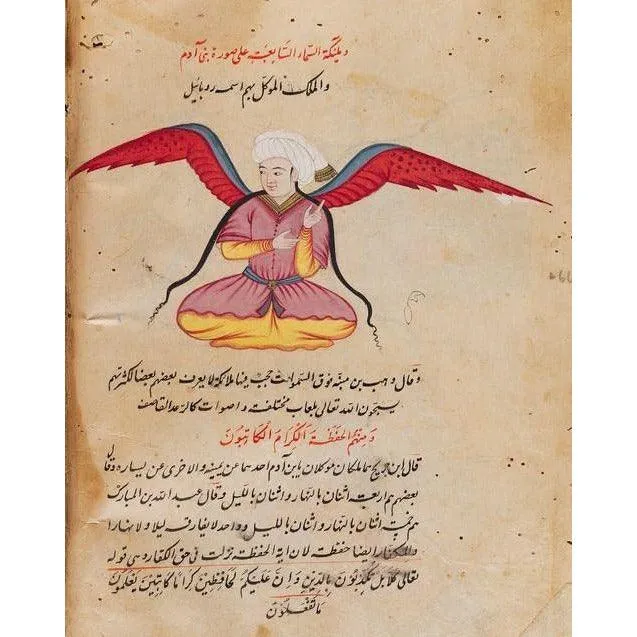 وملیکة السماء السابعة علی صورة بنی آدم
والملك الموکل بهم اسمه روبائیل
وقال وهب بن منبه فوق السموات حجب فیها ملائکة لا یعرف بعضهم بعضا لکثرتهم
یسبحون الله تعالی بلغات مختلفة واصوات کالرعد القاصف
ومنهم الحفظة الکرام الکاتبون
قال ابن جریج هما ملکان موکلان بابن آدم احدهما عن یمینه والاخری عن یساره وقال
بعضهم هم اربعة اثنان بالنهار واثنان باللیل وقال عبد الله بن المبارك
هم خمسة اثنان بالنهار واثنان باللیل وواحد لا یفارق لیلا ولا نهارا
وللکفار ایضا حفظة لان ایة الحفظة نزلت فی حق الکفار وهی قوله
تعالی کلا بل تکذبون بالدین وان علیکم لحافظین کراما کاتبین یعلمون
ما تفعلون